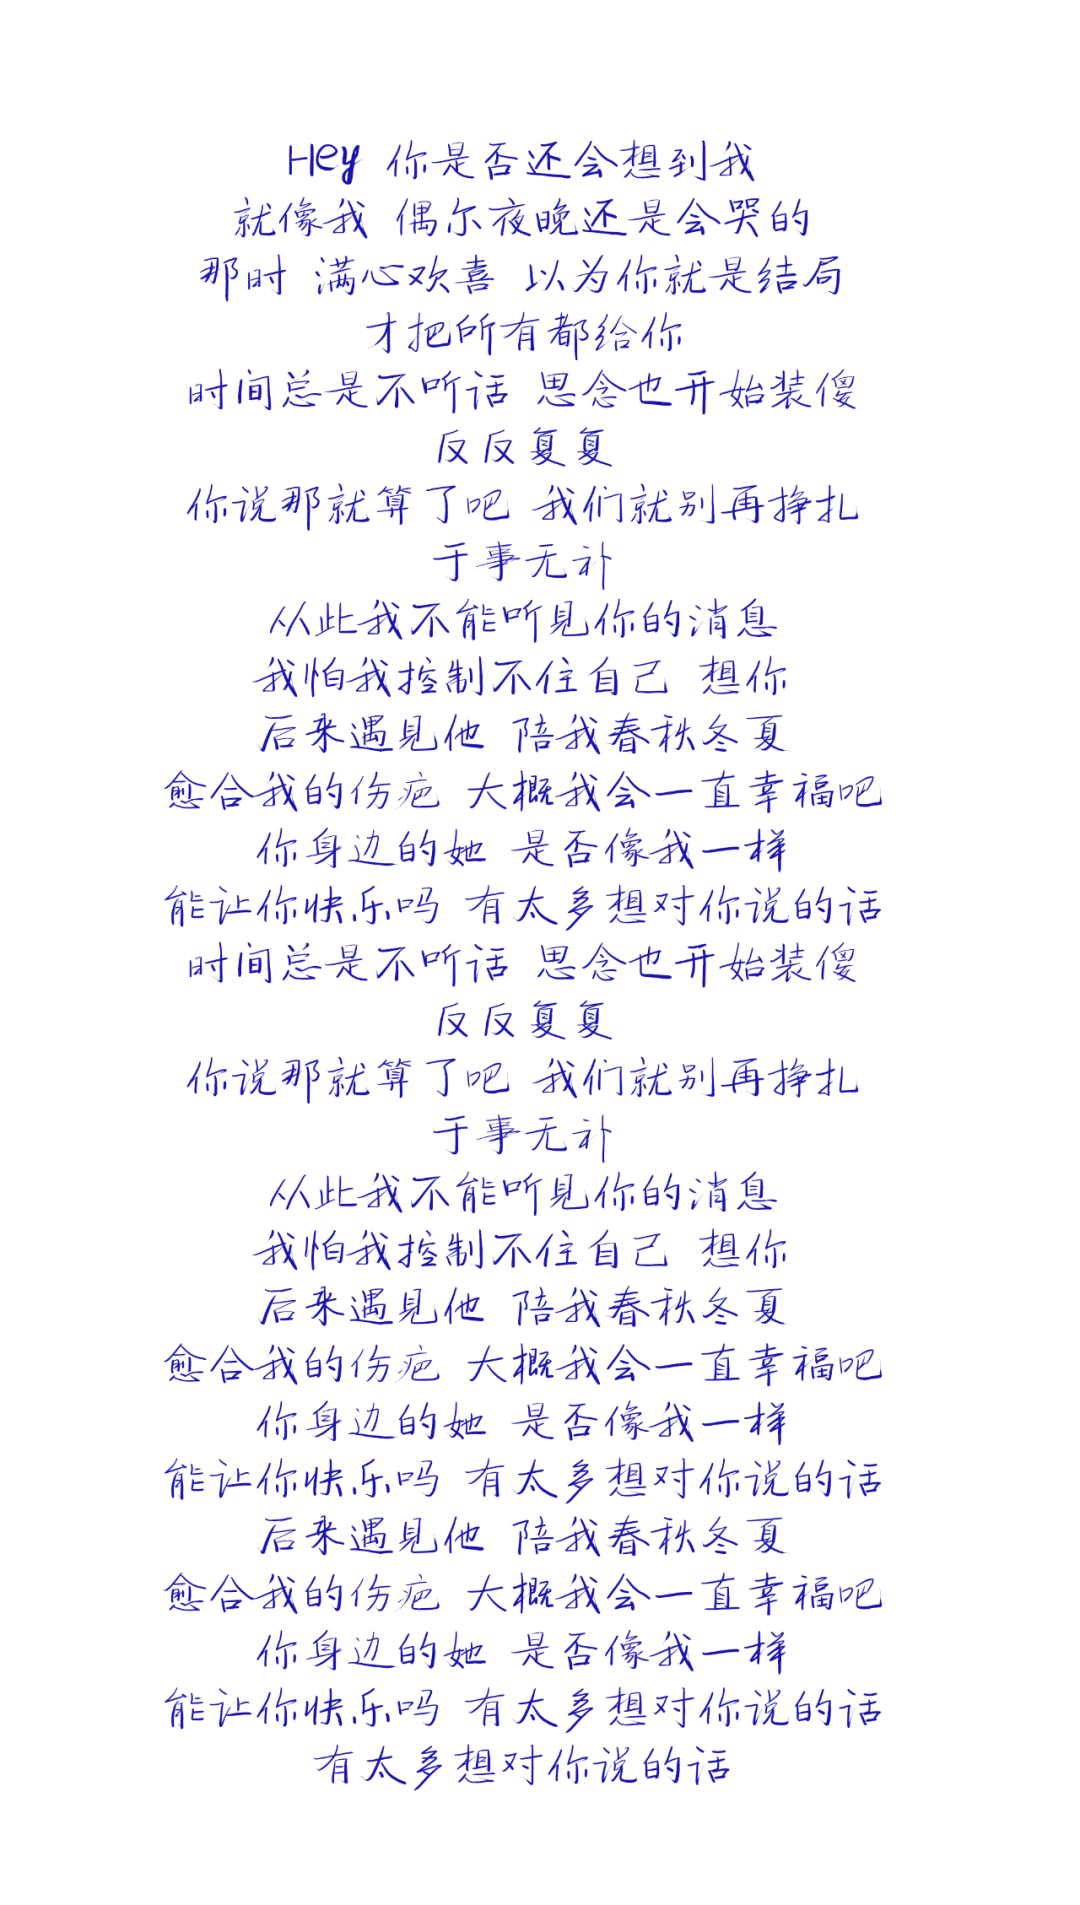 Hey 你是否还会想到我
就像我 偶尔夜晚还是会哭的
那时 满心欢喜 以为你就是结局
才把所有都给你
时间总是不听话 思念也开始装傻
反反复复
你说那就算了吧 我们就别再挣扎
于事无补
从此我不能听见你的消息
我怕我控制不住自己 想你
后来遇见他 陪我春秋冬夏
愈合我的伤疤 大概我会一直幸福吧
你身边的她 是否像我一样
能让你快乐吗 有太多想对你说的话
时间总是不听话 思念也开始装傻
反反复复
你说那就算了吧 我们就别再挣扎
于事无补
从此我不能听见你的消息
我怕我控制不住自己 想你
后来遇见他 陪我春秋冬夏
愈合我的伤疤 大概我会一直幸福吧
你身边的她 是否像我一样
能让你快乐吗 有太多想对你说的话
后来遇见他 陪我春秋冬夏
愈合我的伤疤 大概我会一直幸福吧
你身边的她 是否像我一样
能让你快乐吗 有太多想对你说的话
有太多想对你说的话